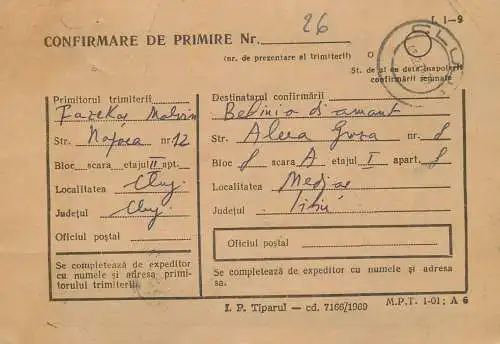 L 1-9
CONFIRMARE DE PRIMIRE Nr. 26
(nr. de prezentare al trimiterii)
CLUJ
St. de zi cu data înapoierii
confirmării semnate
Primitorul trimiterii
Fazekas
Str. Napoca nr 12
Bloc scara etajul II apt.
Localitatea Cluj
Județul Cluj
Oficiul poștal
Se completează de expeditor
cu numele și adresa primi-
torului trimiterii
Destinatarul confirmării
Str. Aleea Groza nr. 8
Bloc 8 scara A etajul I apart. 8
Localitatea Mediaș
Județul Sibiu
Oficiul poștal
Se completează de expeditor cu numele și adresa
sa.
I. P. Tiparul — cd. 7166/1969 M.P.T. 1-01; A 6